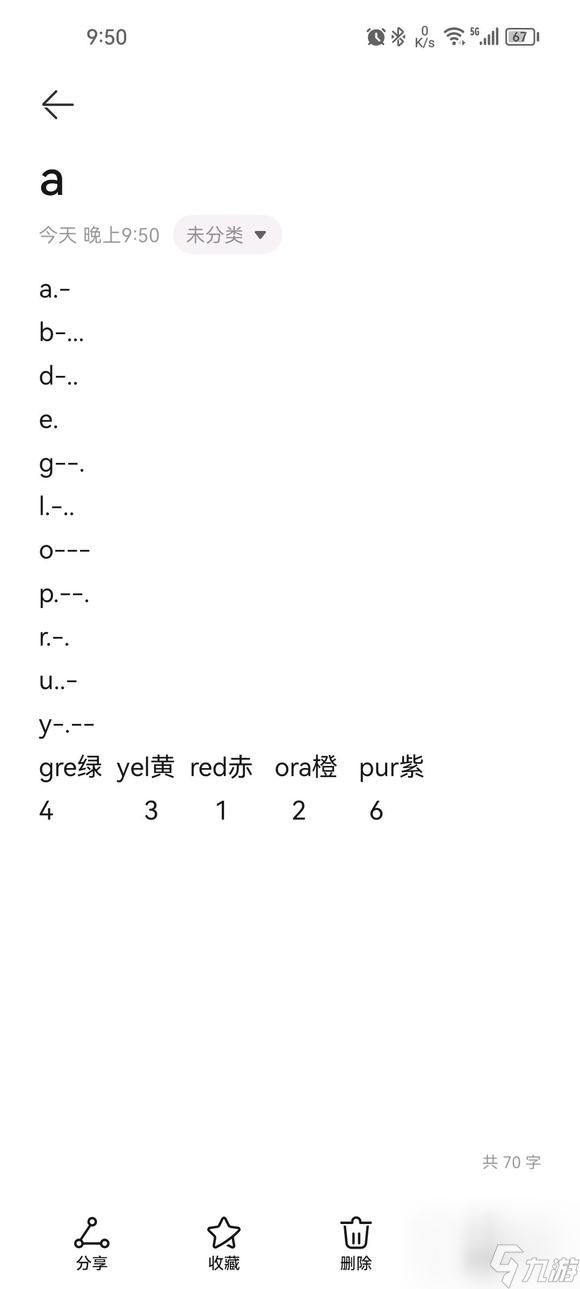 9:50 0 K/s 5G 67
a
今天 晚上9:50 未分类
a.-
b-...
d-..
e.
g--.
l.-..
o---
p.--.
r.-.
u..-
y-.--
gre绿 yel黄 red赤 ora橙 pur紫
4 3 1 2 6
共 70 字
分享 收藏 删除
九游